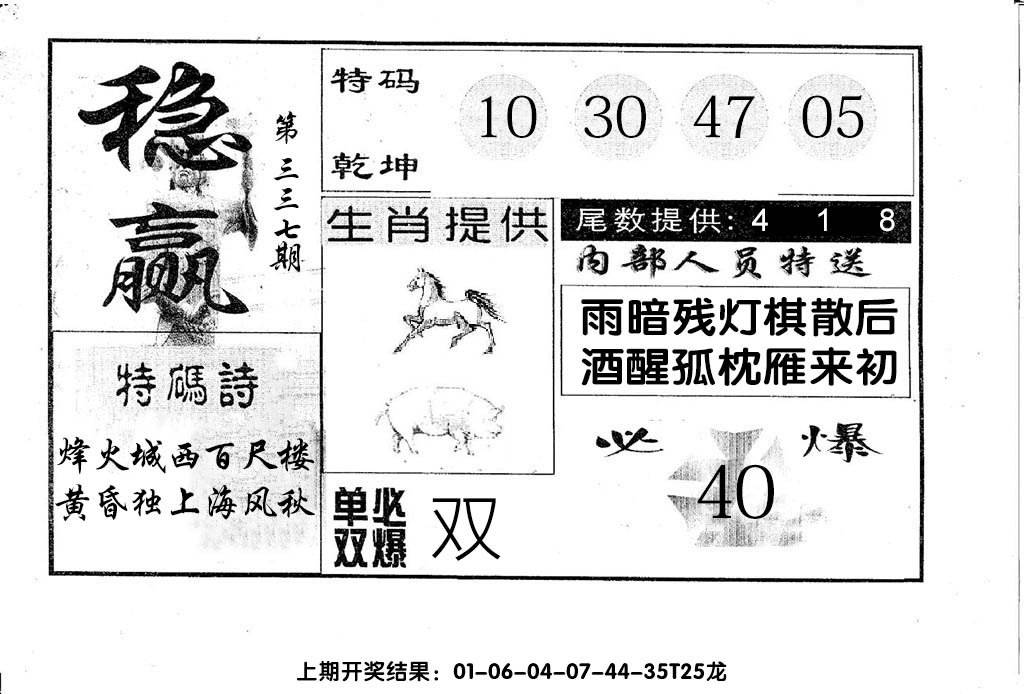 稳赢
第三三七期
特码
乾坤
10 30 47 05
生肖提供
尾数提供: 4 1 8
内部人员特送
雨暗残灯棋散后
酒醒孤枕雁来初
特碼詩
烽火城西百尺楼
黄昏独上海风秋
必爆
40
单双必爆
双
上期开奖结果：01-06-04-07-44-35T25龙